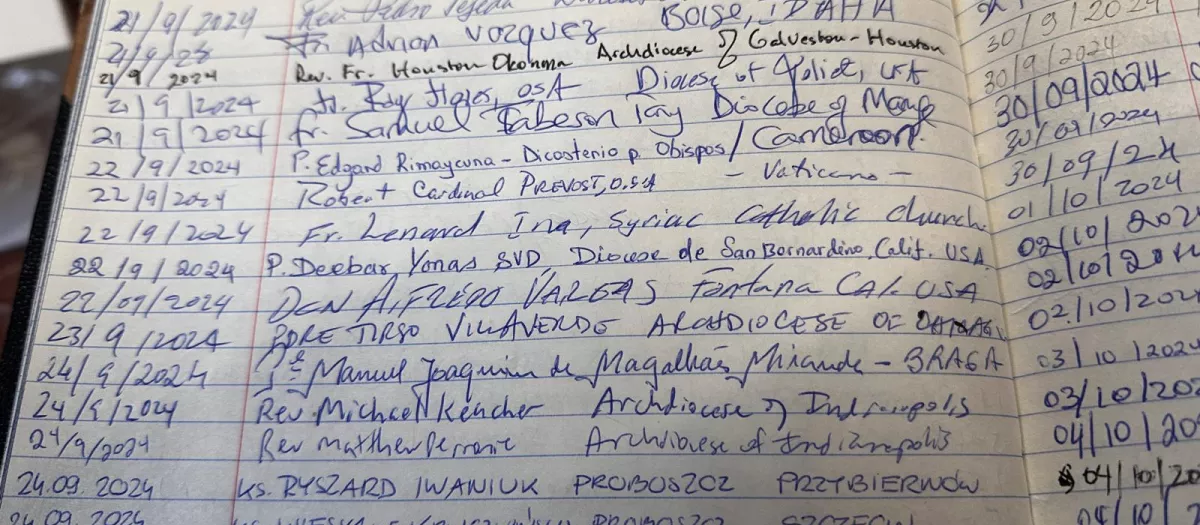 21/9/2024 Rev.
21/9/23 Fr. Adrian Vazquez BOISE, IDAHA
21/9/2024 Rev. Fr. Houston Okonma Archdiocese of Galveston-Houston
21/9/2024 Fr. Ray Flores, OSA Diocese of Joliet, USA
21/9/2024 Fr. Samuel Tabeson Diocese of
22/9/2024 P. Edgard Rimaycuna - Dicasterio p. Obispos / Cameroon.
22/9/2024 Robert Cardinal PREVOST, O.S.A - Vaticano -
22/9/2024 Fr. Lenard Ina, Syriac Catholic Church.
22/9/2024 P. Deebar, Yonas SVD, Diocese de San Bornardino, Calif. USA.
22/09/2024 DCN ALFREDO VARGAS Fontana CAL. USA
23/9/2024 PDRE TIRSO VILLAVERDE ARCHDIOCESE OF
24/9/2024 Pe Manuel Joaquim de Magalhães Miranda - BRAGA
24/9/2024 Rev. Michael Keucher Archdiocese of Indianapolis
24/9/2024 Rev Matthew Perronie Archdiocese of Indianapolis
24.09.2024 KS. RYSZARD IWANIUK PROBOSZCZ PRZYBIERNÓW
24.09.2024 PROBOSZCZ SZCZECIN
30/9/2024
30/9/2024
30/09/2024
30/09/2024
30/09/24
01/10/2024
02/10/202
02/10/2024
02/10/202
03/10/2024
03/10/202
04/10/20
04/10/20
04/10/2